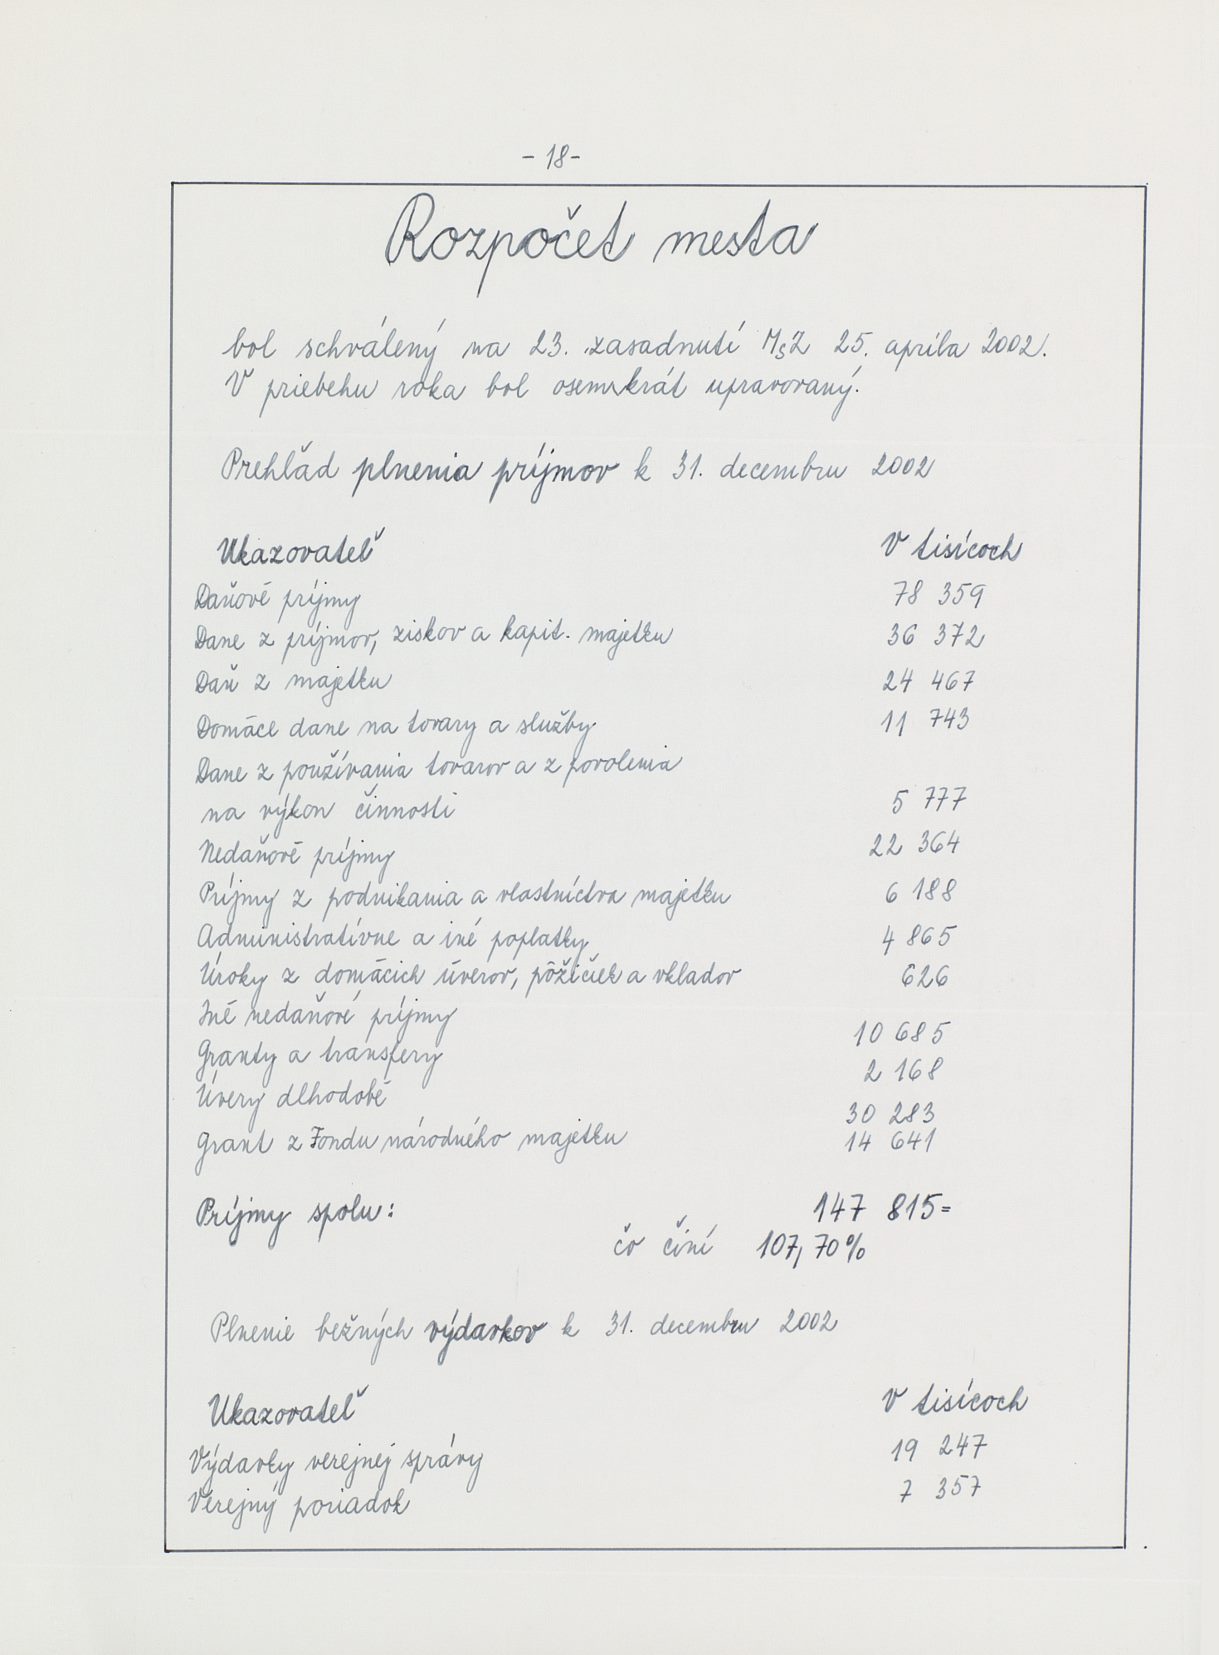 - 18 -
Rozpočet mesta
bol schválený na 23. zasadnutí MsZ 25. apríla 2002.
V priebehu roka bol osemkrát upravovaný.
Prehľad plnenia príjmov k 31. decembru 2002
Ukazovateľ V tisícoch
Daňové príjmy 78 359
Dane z príjmov, ziskov a kapit. majetku 36 372
Daň z majetku 24 467
Domáce dane na tovary a služby 11 743
Dane z používania tovarov a z povolenia
na výkon činnosti 5 777
Nedaňové príjmy 22 364
Príjmy z podnikania a vlastníctva majetku 6 188
Administratívne a iné poplatky 4 865
Úroky z domácich úverov, pôžičiek a vkladov 626
Iné nedaňové príjmy 10 685
Granty a transfery 2 168
Úvery dlhodobé 30 283
Grant z Fondu národného majetku 14 641
Príjmy spolu: 147 815=
čo činí 107,70%
Plnenie bežných výdavkov k 31. decembru 2002
Ukazovateľ V tisícoch
Výdavky verejnej správy 19 247
Verejný poriadok 7 357